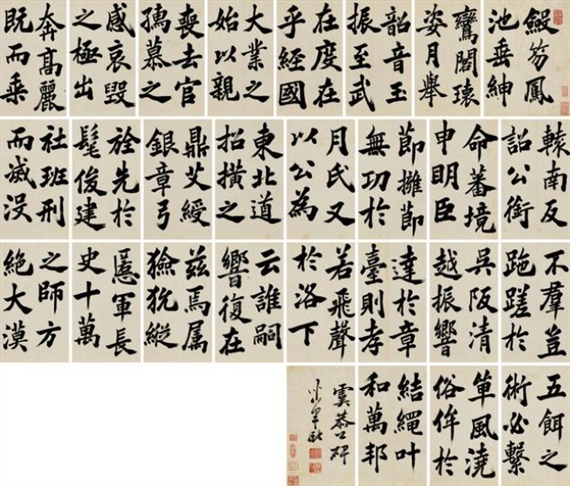 笏鳳
池垂紳
鸞閣瓌
姿月舉
韶音玉
振至武
在度在
乎經國
大業之
始以親
喪去官
孺慕之
感哀毀
之極出
奔高麗
既而乘
轅南反
詔公銜
命蕃境
申明臣
節擁節
無功於
月氏又
以公為
東北道
招之
鼎艾綬
銀章弓
於先於
髦俊建
社班刑
而滅沒
不羣豈
於
吳阪清
越振響
達於章
臺則孝
若飛聲
於洛下
云誰嗣
響復在
兹馬属
獫狁縱
慝軍長
史十萬
之師方
絶大漠
五餌之
術必繫
單風澆
俗侔於
結繩叶
和萬邦
虞恭公碑